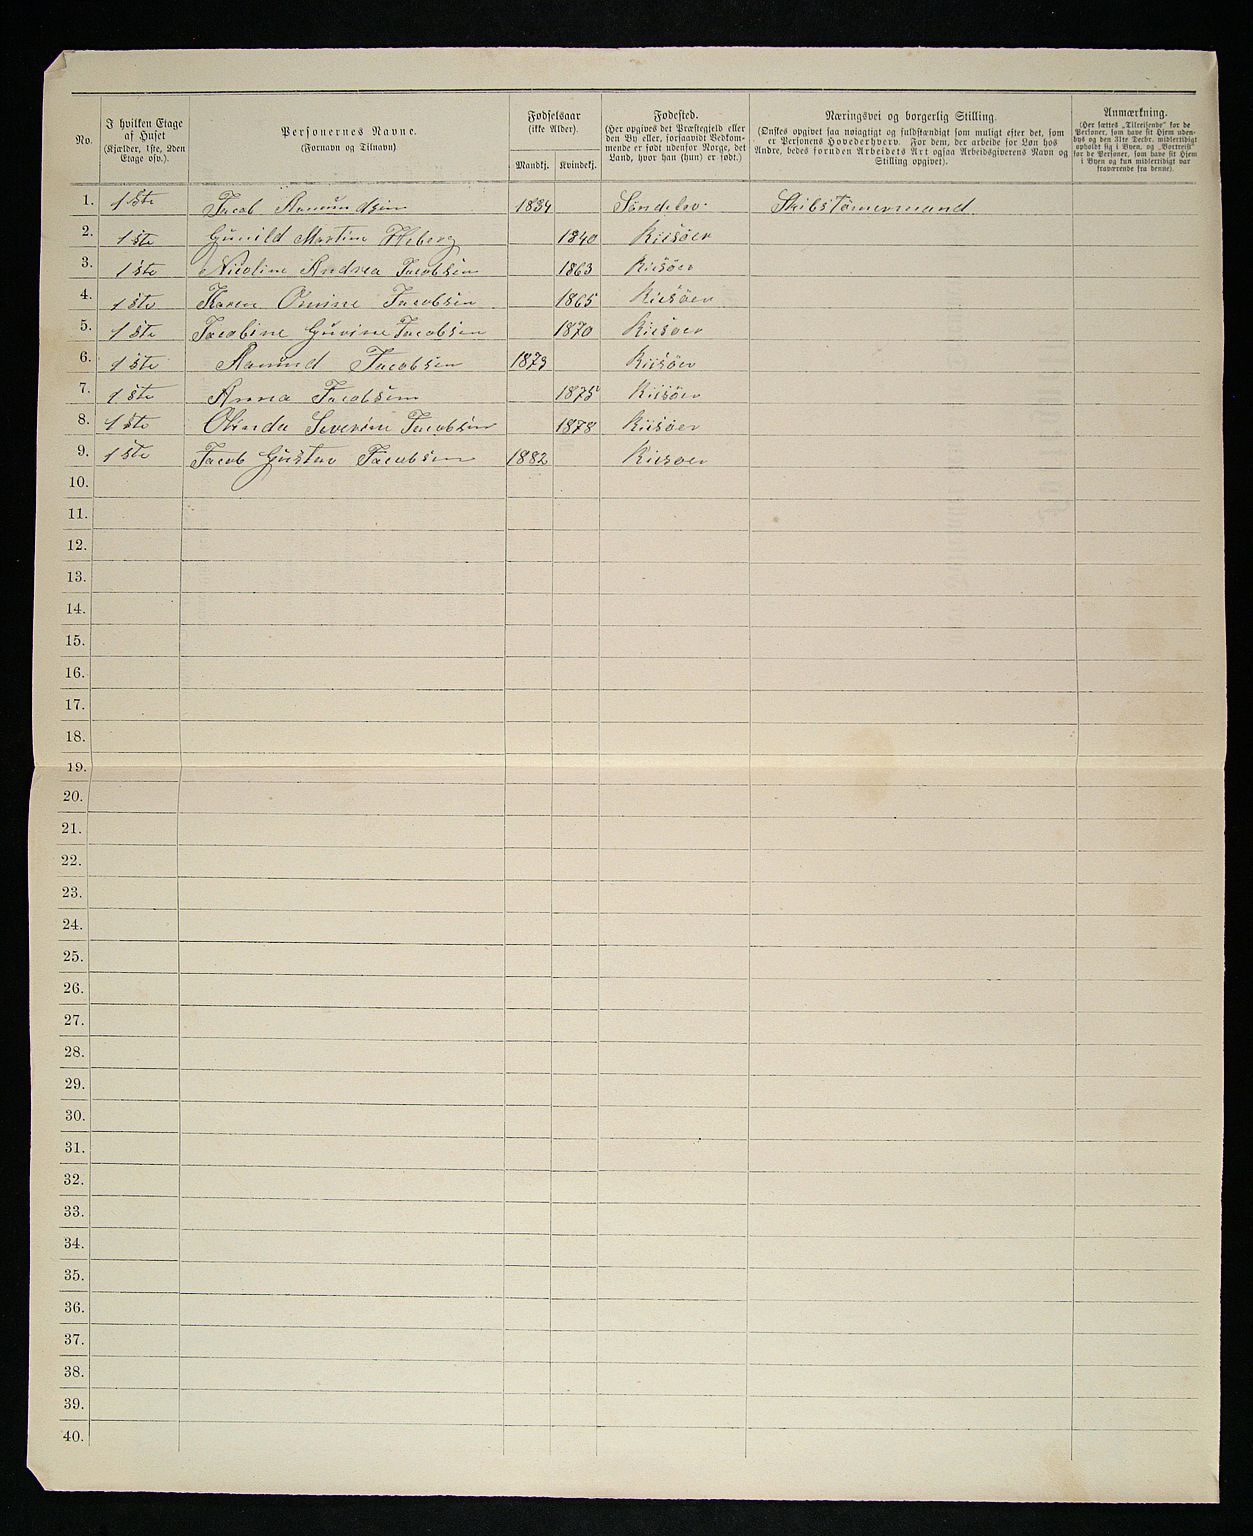 No.
I hvilken Etage af Huset (Kjælder, 1ste, 2den Etage osv.).
Personernes Navne. (Fornavn og Tilnavn).
Fødselsaar (ikke Alder).
Mandkj. Kvindekj.
Fødested. (Her opgives det Præstegjeld eller den By eller, forsaavidt Vedkommende er født udenfor Norge, det Land, hvor han (hun) er født.)
Næringsvei og borgerlig Stilling. (Ønskes opgivet saa nøiagtigt og fuldstændigt som muligt efter det, som er Personens Hovederhverv. For dem, der arbeide for Løn hos Andre, bedes foruden Arbeidets Art ogsaa Arbeidsgiverens Navn og Stilling opgivet).
Anmærkning. (Her sættes „Tilreisende“ for de Personer, som have sit Hjem udenbys og den 31te Decbr. midlertidigt opholdt sig i Byen, og „Bortreist“ for de Personer, som have sit Hjem i Byen og kun midlertidigt var fraværende fra denne).
1. 1ste Jacob Aamundsen 1834 Søndelev. Skibstømermand
2. 1ste Gunild Martine 1840 Riisøer
3. 1ste Nicoline Andrea Jacobsen 1863 Riisøer
4. 1ste Karen Jacobsen 1865 Riisøer
5. 1ste Jacobine Gurine Jacobsen 1870 Riisøer
6. 1ste Aamund Jacobsen 1873 Riisøer
7. 1ste Anna Jacobsen 1875 Riisøer
8. 1ste Severine Jacobsen 1878 Riisøer
9. 1ste Jacob Gustav Jacobsen 1882 Riisøer
10.
11.
12.
13.
14.
15.
16.
17.
18.
19.
20.
21.
22.
23.
24.
25.
26.
27.
28.
29.
30.
31.
32.
33.
34.
35.
36.
37.
38.
39.
40.